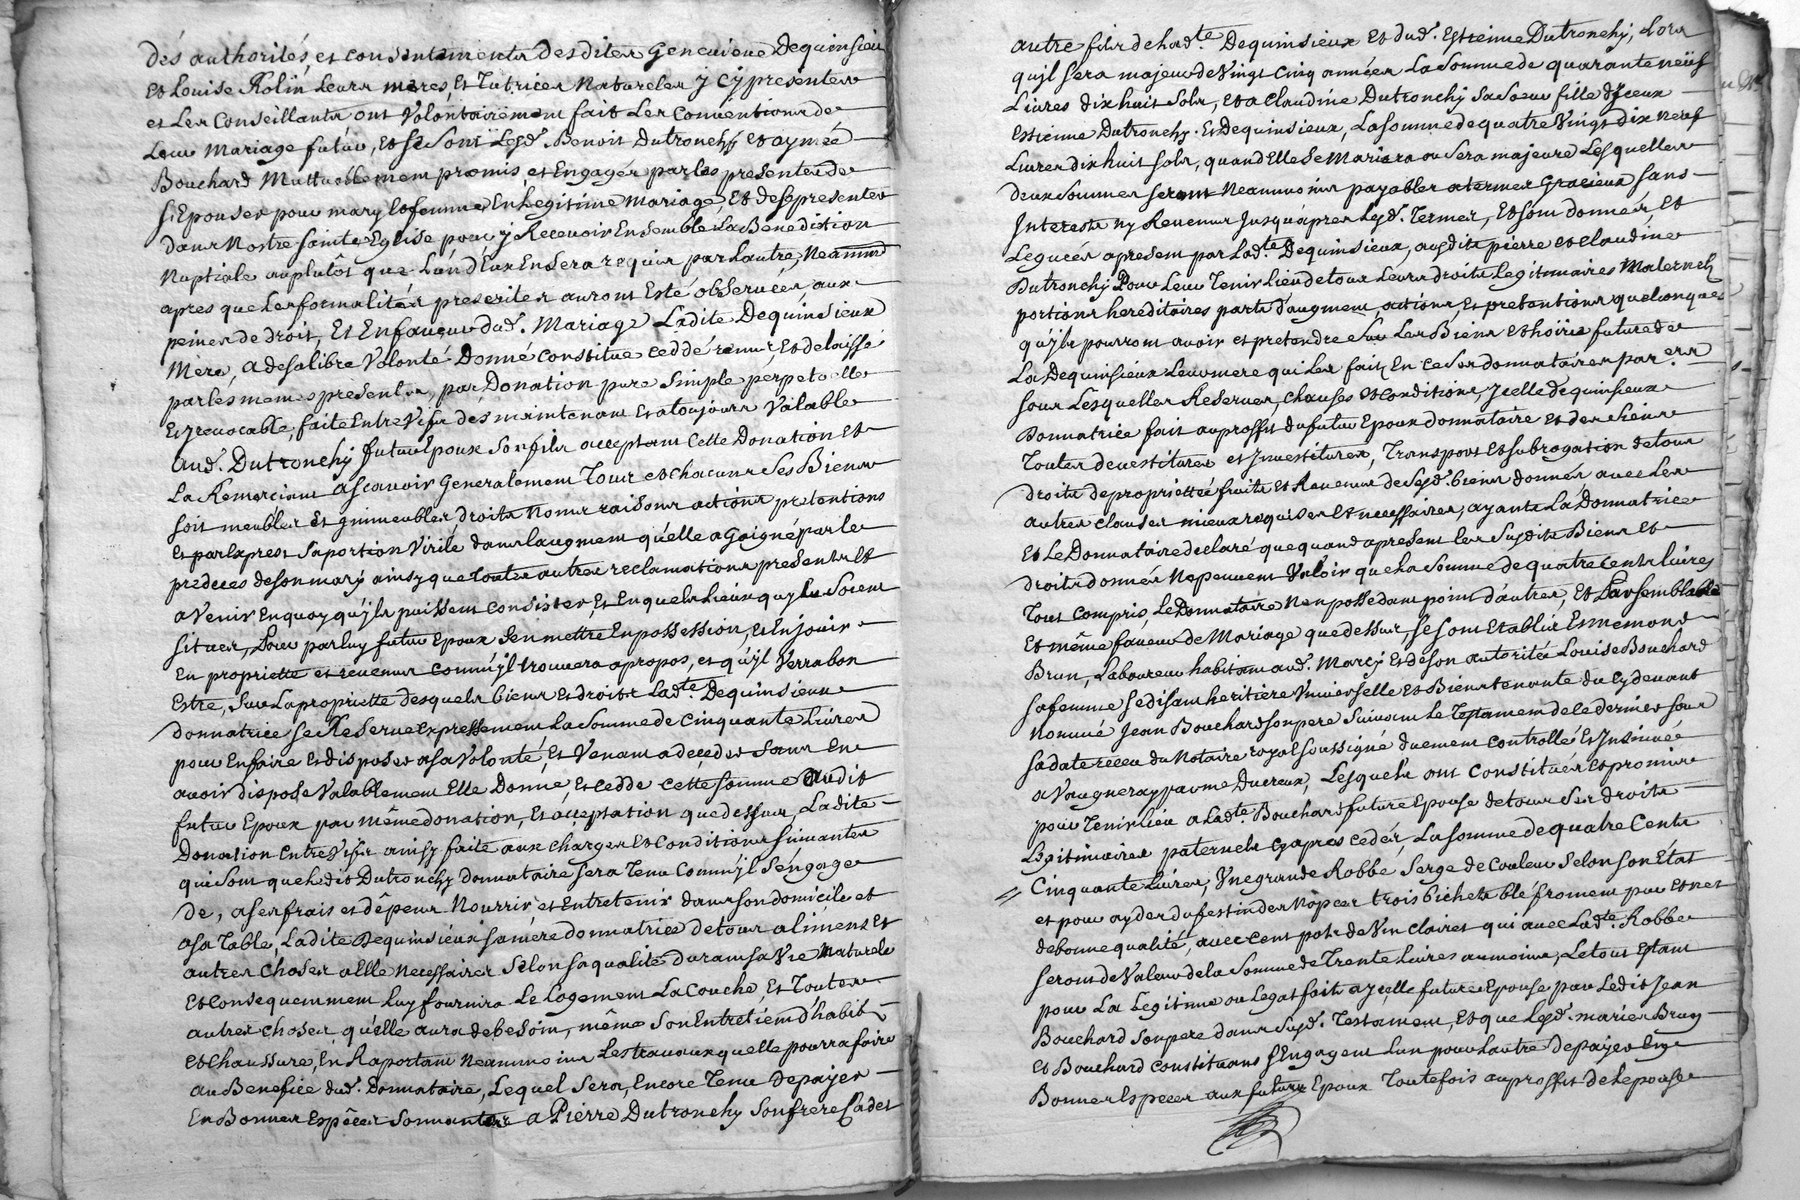 dés authorités, et consentements desdites Genevieve Dequinsieu
et Louise Rolin leurs meres, et Tutrices Naturelles y cy presentes
et Les Conseillants ont Volontairement fait Les Conventions de
Leur Mariage futur, et se sont Lesd. Benoit Dutronchy et aymée
Bouchard Muttuellement promis, et Engagés par les presentes de
s'Epouser pour mary & femme En Legitime Mariage, Et de se presenter
dans Nostre sainte Eglise pour y Recevoir Ensemble La Benediction
Nuptiale auplutôt que L'un d'Eux En sera requis par Lautre, Neammo
apres que Les formalités prescrites auront Esté observées aux
peines de droit, Et En faveur dud. Mariage Ladite Dequinsieux
Mere, a de sa libre Volonté Donné constitue ceddé remis Et delaissé
par les memes presentes, par Donation pure simple perpetuelle
Et jrrevocable, faite Entre Vifs dés maintenant et a toujours Valable
aud. Dutronchy futur Epoux son fils acceptant Cette Donation et
La Remerciant ascavoir Generalement Tous et chacuns Ses Biens
soit meubles Et jmmeubles droits Noms raisons actions pretentions
et par Exprest sa portion Virile dans laugment qu'elle a Gaigné par le
predeces de son mary ainsy que toutes autres reclamations presents et
a Venir En quoy qu'jls puissent consister et En quels Lieux quyls soient
situés, Pour par luy futur Epoux s'en mettre En possession, et En jouir
En propriette et revenus comm'jl trouvera apropos, et qu'jl Verra bon
Estre, Sur La propriette desquels biens et droits Lad.te Dequinsieux
donnatrice se Reserve Expressement La Somme de Cinquante Livres
pour En faire et disposer a sa Volonté, Et Venant a deceder sans En
avoir disposé Valablement Elle Donne, et cedde cette somme audit
futur Epoux par même donation, Et acceptation que dessus, Ladite
Donation Entre Vifs ainsy faite aux charges et conditions suivantes
qui sont que Ledit Dutronchy donnataire sera Tenu Comm'jl S'engage
de, a ses frais et dêpens Nourrir et Entretenir dans son domicile et
a sa Table, Ladite Dequinsieux sa mere donnatrice de tous aliments et
autres choses a Elle Necessaires selon sa qualité durant sa Vie Naturele
Et Consequemment Luy fournira Le Logement La Couche, Et Toutes
autres choses qu'elle aura de besoin, même son Entretien d'habits
et chaussure, En Raportant Neammoins Les travaux quelle pourra faire
au Benefice dud. Donnataire, Lequel sera, Encore Tenu de payer
En Bonnes Especes Sonnantes a Pierre Dutronchy son frere Cadet
autre fils de Lad.te Dequinsieux et dud. Estienne Dutronchy, Lors
qu'jl sera majeur de Vingt Cinq années La Somme de quarante neuf
Livres dix huit sols, et a Claudine Dutronchy sa soeur fille d'jceux
Estienne Dutronchy et Dequinsieux, La somme de quatre Vingt dix neuf
Livres dix huit sols, quand Elle se Mariera ou sera majeure Lesquelles
deux sommes seront Neammoins payables a termes Gracieux sans
Interests ny Revenus jusqu'apres Lesd. Termes, Et sont données, Et
Leguées apresent par Lad.te Dequinsieux, ausdits pierre et Claudine
Dutronchy Pour Leur Tenir Lieu de tous Leurs droits Legitimaires Maternels
portions hereditaires parts d'augment, actions, Et pretentions quelconques
qu'jls pourront avoir et pretendre sur Les Biens et hoirie future de
La Dequinsieux Leur mere qui Les fait En ce ses donnataires par.ers
sous Lesquelles Reserves, Clauses et conditions, jcelle dequinsieux
Donnatrice fait auproffit du futur Epoux donnataire et des siens
Toutes devestitures et jnvestitures, Transport et subrogation de tous
droits de propriettée fruits et Revenus desd. biens donnés avec Les
autres clauses mieux requises Et necessaires, ayants La Donnatrice
Et Le Donnataire declaré que quand apresent Les susdits Biens et
droits donnés Ne peuvent Valoir que La Somme de quatre Cents Livres
Tout Compris, Le Donnataire N'en possedant point d'autres, Et Par semblable
Et même faveur de Mariage que dessus, se sont Etablis Ennemond
Brun, Laboureur habitant aud. Marcy et de son autorité Louise Bouchard
sa femme se disant heritiere Vniverselle et Bientenante du cy devant
Nommé Jean Bouchard son pere suivant Le Testament de ce dernier sous
sa date receu du Notaire royal soussigné duement controllé et Insinué
a Vaugneray par me Ducreux, Lesquels ont Constitués et promis
pour Tenir Lieu a Lad.te Bouchard future Epouse de tous Ses droits
Legitimaires paternels cy apres cedés, La somme de quatre Cents
Cinquante Livres, Vne grande Robbe Serge de Couleur Selon son Etat
et pour ayder du festin des Nopces trois bichets blé froment pur et net
de bonne qualité, avec cent pots de Vin clairet qui avec Lad.te Robbe
seront de Valeur de la Somme de Trente Livres aumoins, Le tout Etant
pour La Legitime ou Legat fait a jcelle future Epouse par Ledit Jean
Bouchard son pere dans susd. Testament, Et que Lesd. mariés Brun
et Bouchard constituans s'Engagent L'un pour L'autre de payer En
Bonnes Especes aux futurs Epoux Toutefois auproffit de Lepouse